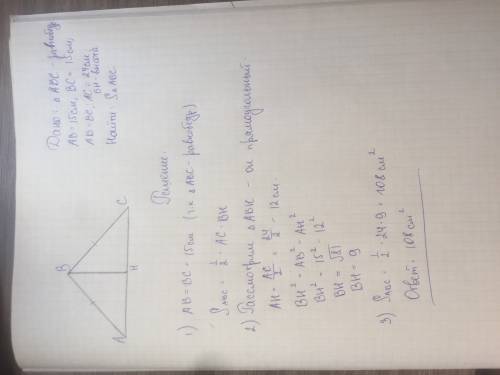 Дано: △ ABC - равнобедр.
AB = 15 см, BC = 15 см,
AB = BC; AC = 24 см
BH - высота
Найти: S△ABC.
B
A
H
C
Решение:
1) AB = BC = 15 см (т.к △ ABC - равнобедр)
SABC = 1/2 · AC · BH
2) Рассмотрим △ABH - он прямоугольный
AH = AC/2 = 24/2 = 12 см.
BH² = AB² - AH²
BH² = 15² - 12²
BH = √81
BH = 9
3) SABC = 1/2 · 24 · 9 = 108 см²
Ответ: 108 см²